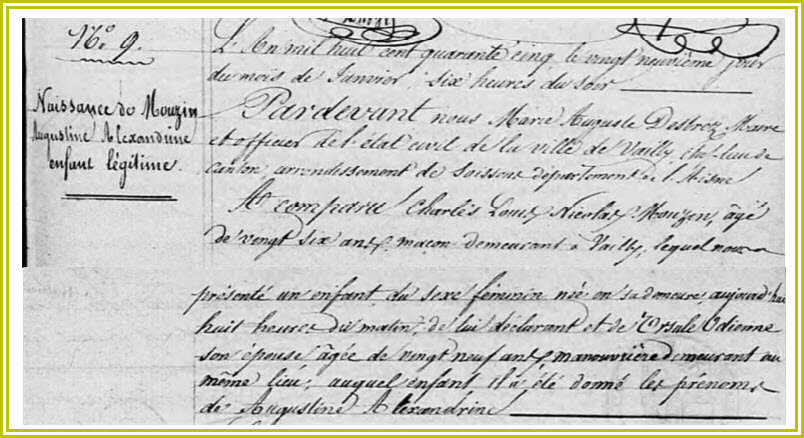 N.° 9.
Naissance de Mouzin
Augustine Alexandrine
enfant légitime.
L'An mil huit cent quarante cinq, le vingt neuvième jour
du mois de Janvier, six heures du soir
Pardevant nous Marie Auguste Maire
et officier de l'état civil de la ville de Vailly, ch.-lieu de
canton, arrondissement de Soissons département de l'Aisne
A comparu Charles Louis Nicolas Mouzin, âgé
de vingt six ans, maçon demeurant à Vailly, lequel nous a
présenté un enfant du sexe féminin née en sa demeure, aujourd'hui
huit heures du matin, de lui déclarant et de Ursule Odienne
son épouse âgée de vingt neuf ans, manouvrière demeurant au
même lieu, auquel enfant il a été donné les prénoms
de Augustine Alexandrine